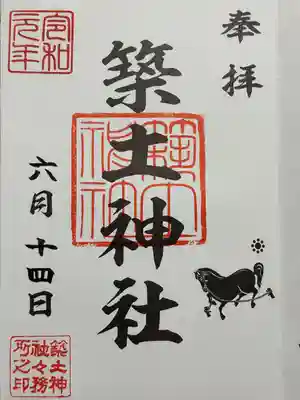 奉拝
築土神社
令和
元年
六月十四日
築土神
社々務
所之印